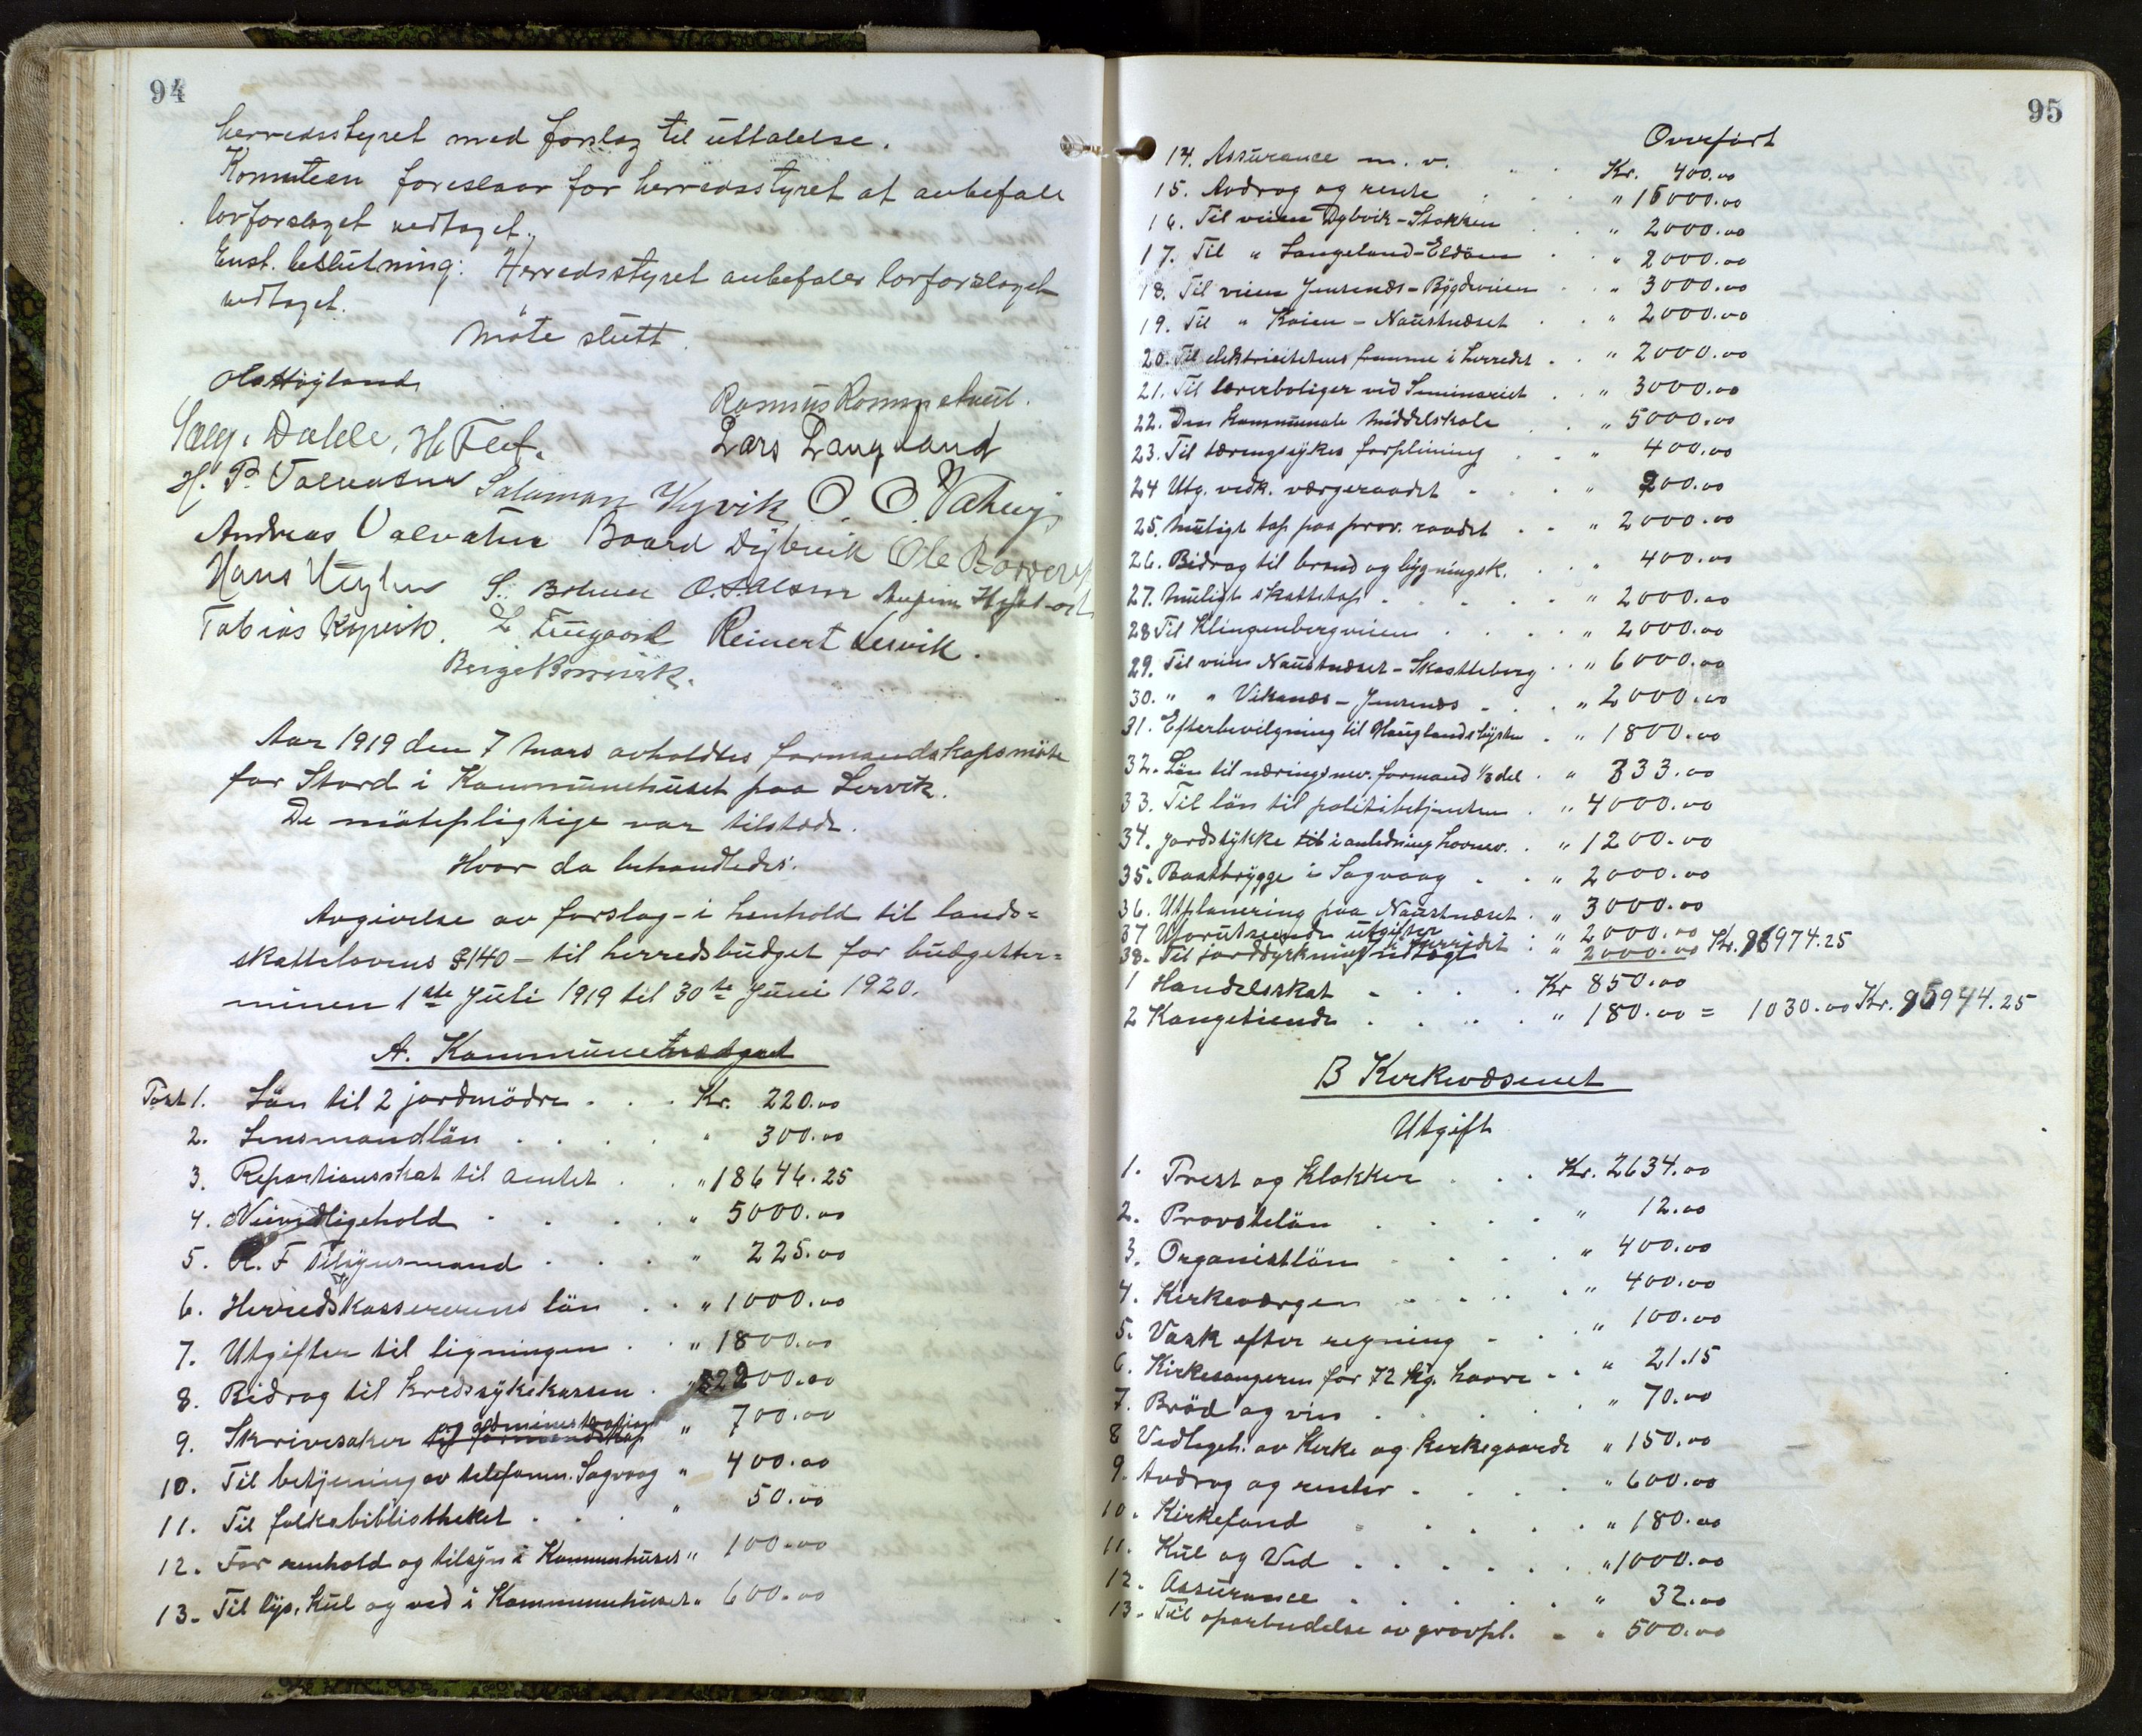 94
herredsstyret med forslag til uttalelse.
Komiteen foreslaar for herredsstyret at anbefale
lovforslaget vedtaget.
Enst. beslutning: Herredsstyret anbefaler lovforslaget
vedtaget.
Möte slutt.
Ola Høyland
Rasmus Rommetveit.
Dahle, H. Flet.
Lars Langeland
H. P. Valvatne Salamon Kyvik O. O.
Andreas Valvatne Baard Dybvik Ole
Hans
Tobias Kyvik. Reinert Lervik.
Børge
Aar 1919 den 7 mars avholdtes formandskapsmöte
for Stord i Kommunehuset paa Lervik.
De mötepligtige var tilstæde.
Hvor da behandledes:
Avgivelse av forslag - i henhold til lands-
skattelovens § 140 - til herredsbudget for budgetter-
minen 1ste Juli 1919 til 30te Juni 1920.
A. Kommune
Post 1. Lön til 2 jordmödre . . . Kr. 220.00
2. Lensmandlön . . . . . " 300.00
3. Repartionsskat til amtet . . " 18646.25
4. Veivedligehold . . . . " 5000.00
5. R. F tilsynsmand . . . . " 225.00
6. Herredskassererens lön . . " 1000.00
7. Utgifter til ligningen . . " 1800.00
8. Bidrag til kredssykekassen . " 2200.00
9. Skrivesaker og administration til formandskap " 700.00
10. Til betjening av telefonen. Sagvaag " 400.00
11. Til folkebibliotheket . . . " 50.00
12. For renhold og tilsyn i Kommunhuset " 100.00
13. Til lys, kul og ved i Kommunehuset " 600.00
95
Overført
14. Assurance m. v. . . Kr. 400.00
15. Avdrag og rente . . . " 16000.00
16. Til veien Dybvik-Stokken . . " 2000.00
17. Til " Langeland-Eldöen . . " 2000.00
18. Til veien Jensenæs-Bygdeveien . . " 3000.00
19. Til " Kaien - Naustneset . . " 2000.00
20. Til elektricitetens fremme i herredet . . " 2000.00
21. Til lærerboliger ved Seminariet . . " 3000.00
22. Den kommunale middelskole . . " 5000.00
23. Til tæringsykes forpleining . . " 400.00
24 Utg. vedk. værgeraadet . . . " 200.00
25. Muligt tap paa prov. raadet . . " 2000.00
26. Bidrag til brand og bygningsk. . . " 400.00
27. Muligt skattetap . . . . . " 2000.00
28 Til Klingenbergveien . . . . " 2000.00
29. Til veien Naustneset - Skotteberg . . " 6000.00
30. " " Vikanes - Jensenes . . . " 2000.00
31. Efterbevilgning til Hauglandshysten . " 1800.00
32. Lön til næringsnev. formand 1/3 del . " 333.00
33. Til lön til politibetjenten . " 4000.00
34. Jordstykke til i anledning havnev. . " 1200.00
35. Baatbrygge i Sagvaag . . " 2000.00
36. Utplanering paa Naustneset . " 3000.00
37 Uforutseende utgifter . " 2000.00
38. Til jorddyrkning i herredet . " 2000.00 Kr. 96974.25
1 Handelsskat . . . . Kr 850.00
2 Kongetiende . . . . " 180.00 = 1030.00 Kr. 95944.25
B Kirkevæsenet
Utgift
1. Prest og klokker . . . Kr. 2634.00
2. Provstelön . . . . " 12.00
3. Organistlön . . . . " 400.00
4. Kirkeværgen . . . . " 400.00
5. Vask efter regning . . . " 100.00
6. Kirkesangeren for 72 kg. havre . . " 21.15
7. Bröd og vin . . . . . " 70.00
8 Vedligeh. av Kirke og kirkegaarde " 150.00
9. Avdrag og renter . . . . " 600.00
10. Kirkefond . . . . . " 180.00
11. Kul og Ved . . . . . . " 1000.00
12. Assurance . . . . . " 32.00
13. Til oparbeidelse av gravpl. . . " 500.00